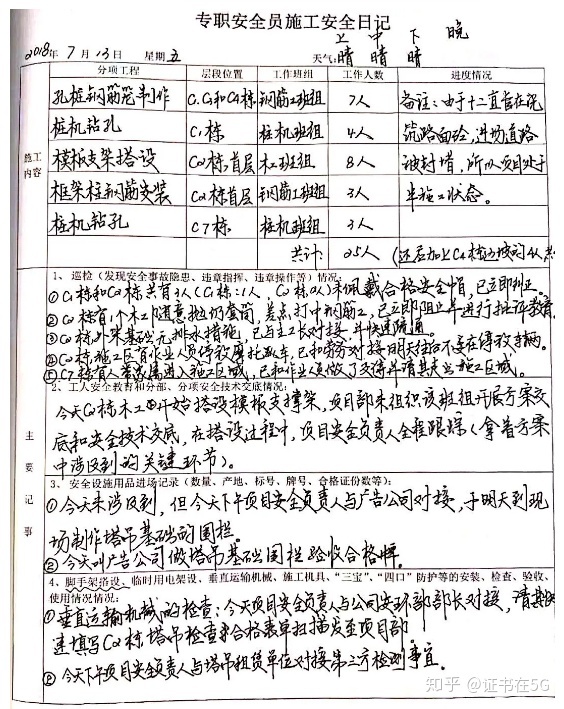 专职安全员施工安全日记
上 中 下 晚
2018年 7月 13日 星期五 天气: 晴 晴 晴
分项工程 层段位置 工作班组 工作人数 进度情况
施工内容
孔桩钢筋笼制作 钢筋工班组 7人 备注:由于十二宜宫在浇
桩机钻孔 C1栋 桩机班组 4人 筑路面砼,进场道路
模板支架搭设 C2栋首层 木工班组 8人 被封堵,所以项目处于
框架柱钢筋安装 C2栋首层 钢筋工班组 3人 半施工状态。
桩机钻孔 C7栋 桩机班组 3人
共计: 25人
主要记事
1、巡检(发现安全事故隐患、违章指挥、违章操作等)情况:
①C1栋和C2栋共有3人(C1栋:1人,C2栋2人)未佩戴合格安全帽,已立即纠正。
②C2栋有1个木工随意抛扔套筒,差点打中钢筋工,已立即阻止并进行批评教育
③C2栋外架基础无排水措施,已与主工长对接并快速疏通。
④C2栋施工区有作业人员停放摩托车,已和劳务对接明天往后不要在停放车辆。
⑤C7栋有人带家属进入施工区域,已和作业人员做了交待并请其离开施工区域。
2、工人安全教育和分部、分项安全技术交底情况:
今天C2栋木工开始搭设模板支撑架,项目部未组织该班组开展方案交
底和安全技术交底,在搭设过程中,项目安全负责人全程跟踪(拿着方案
中涉及到的关键环节)。
3、安全设施用品进场记录(数量、产地、标号、牌号、合格证份数等):
①今天未涉及到,但今天下午项目安全负责人与广告公司对接,于明天到现
场制作塔吊基础的围栏。
②今天叫广告公司做塔吊基础围栏验收合格牌。
4、脚手架搭设、临时用电架设、垂直运输机械、施工机具、“三宝”、“四口”防护等的安装、检查、验收、
使用情况情况:
①垂直运输机械的检查:今天项目安全负责人与公司安环部部长对接,请其快
速填写C2栋塔吊检查合格表单扫描发至项目部。
②今天下午项目安全负责人与塔吊租赁单位对接第三方检测事宜。
知乎 @证书在5G